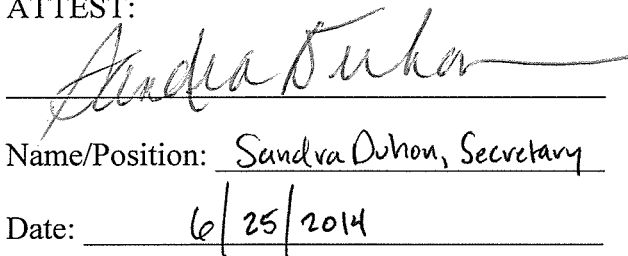 ATTEST:
Sandra Duhon
Name/Position: Sandra Duhon, Secretary
Date: 6/25/2014